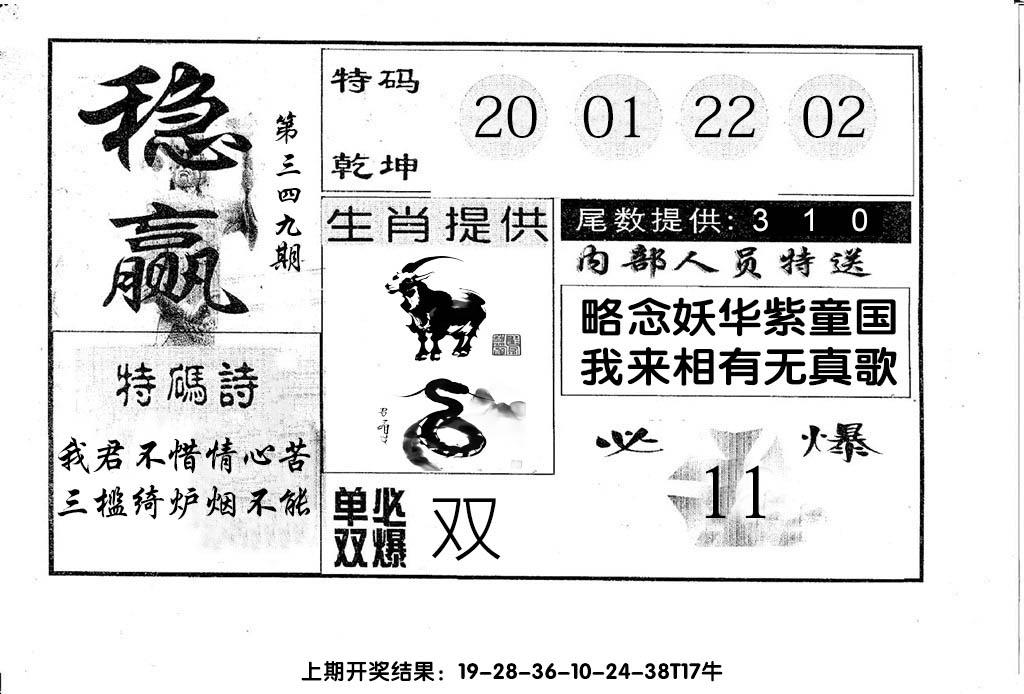 稳赢
第三四九期
特码
乾坤
20 01 22 02
生肖提供
尾数提供: 3 1 0
内部人员特送
略念妖华紫童国
我来相有无真歌
特碼詩
我君不惜情心苦
三槛绮炉烟不能
单双
必爆
双
必 11 爆
上期开奖结果：19-28-36-10-24-38T17牛